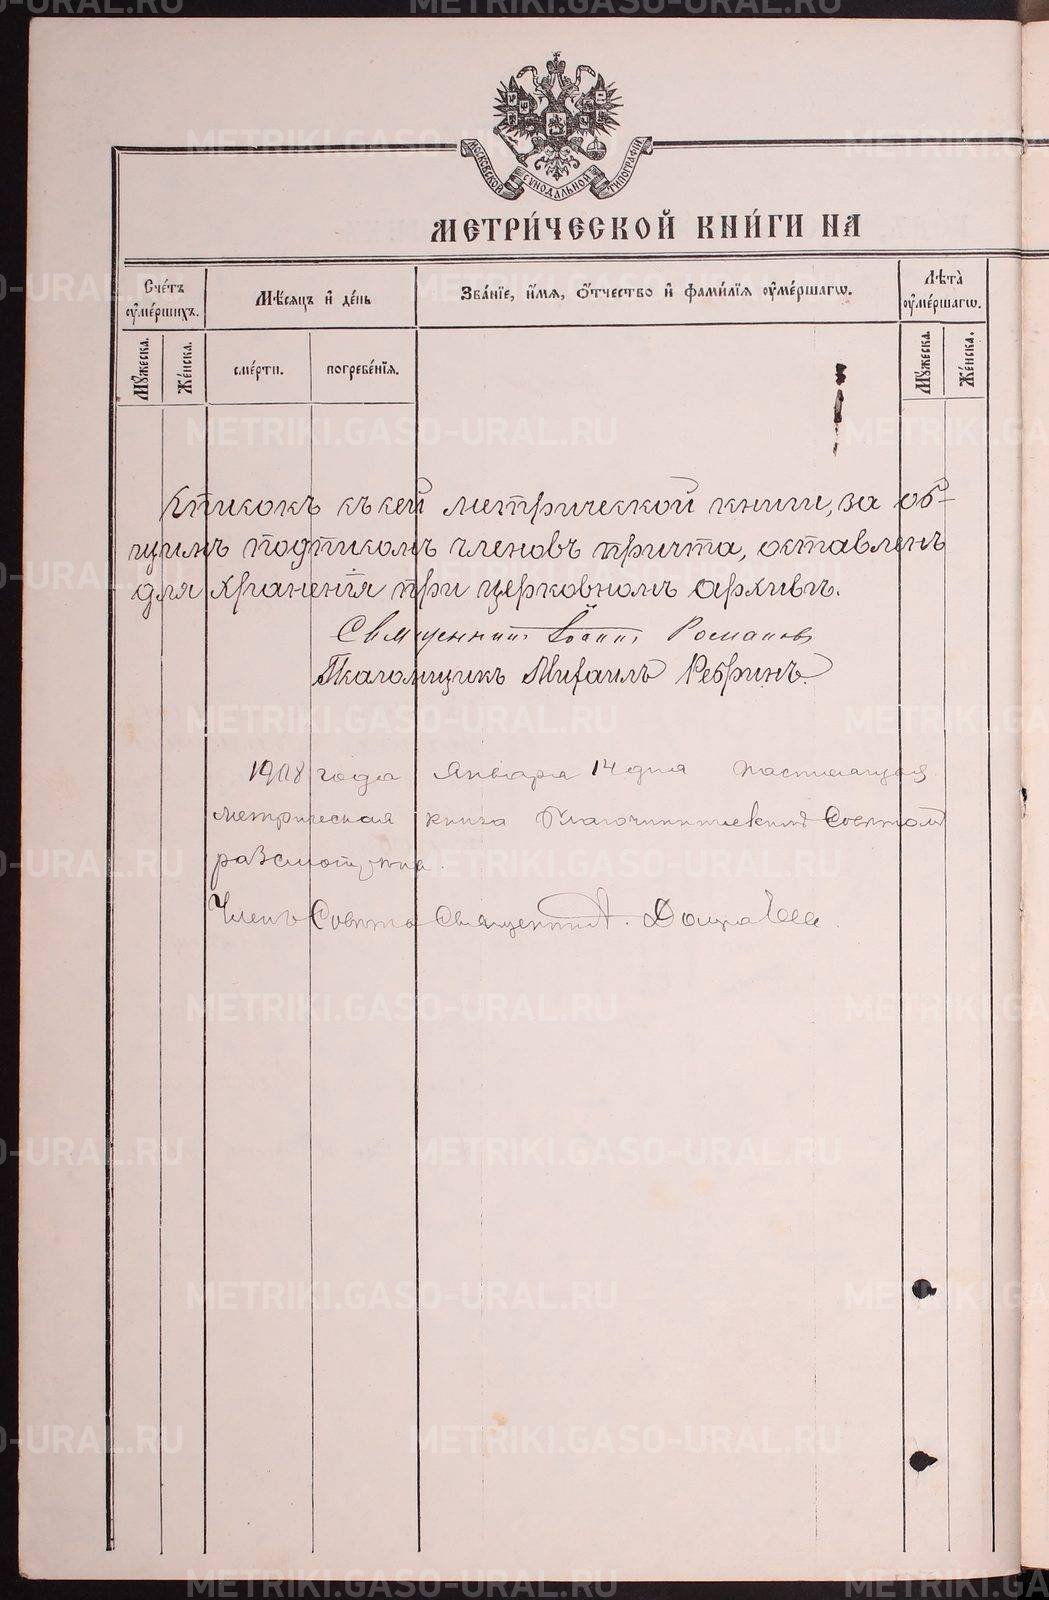 МОСКОВСКОЙ СѴНОДАЛЬНОЙ ТИПОГРАФІИ
МЕТРИ́ЧЕСКОЙ КНИ́ГИ НА
Сче́тъ ᲂу҆ме́ршихъ.
Мѣ́сяцъ и҆ де́нь
Зва́нїе, и҆́мѧ, ѻ҆́тчество и҆ фами́лїѧ ᲂу҆ме́ршагѡ.
Лѣ́та ᲂу҆ме́ршагѡ.
Мꙋ́жеска.
Же́нска.
сме́рти.
погребе́нїѧ.
Мꙋ́жеска.
Же́нска.
Списокъ съ сей метрической книги, за об-
щимъ подписомъ членовъ причта, оставленъ
для храненія при церковномъ архивѣ.
Священникъ Іоаннъ Романовъ
Псаломщикъ Михаилъ Ребринъ.
1908 года Января 14 дня настоящая
метрическая книга Благочинническимъ Совѣтомъ
разсмотрѣна.
Членъ Совѣта Священникъ А.
METRIKI.GASO-URAL.RU